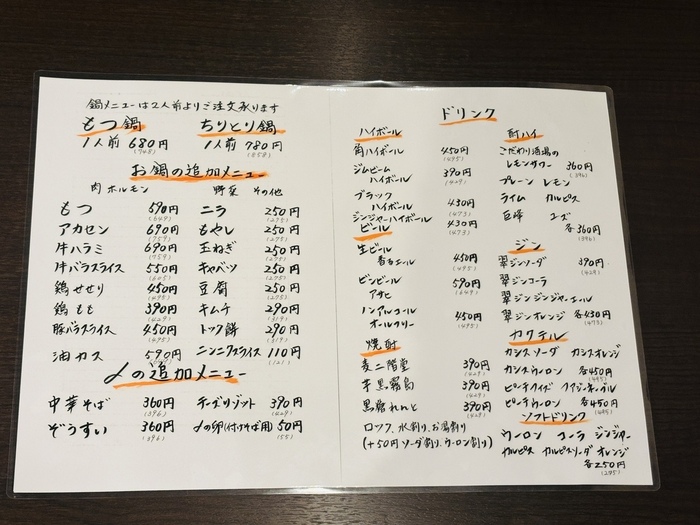 鍋メニューは2人前よりご注文承ります
もつ鍋 ちりとり鍋
1人前 680円 1人前 780円
(748) (858)
お鍋の追加メニュー
肉 ホルモン 野菜 その他
もつ 590円 ニラ 250円
(649) (275)
アカセン 690円 もやし 250円
(759) (275)
牛ハラミ 690円 玉ねぎ 250円
(759) (275)
牛バラスライス 550円 キャベツ 250円
(605) (275)
鶏せせり 450円 豆腐 250円
(495) (275)
鶏もも 390円 キムチ 290円
(429) (319)
豚バラスライス 450円 トック餅 290円
(495) (319)
油カス 590円 ニンニクスライス 110円
(121)
〆の追加メニュー
中華そば 360円 チーズリゾット 390円
(396) (429)
ぞうすい 360円 〆の卵(付けそば用) 50円
(396) (55)
ドリンク
ハイボール
角ハイボール 450円
(495)
ジムビーム 390円
ハイボール (429)
ブラック
ハイボール 430円
(473)
ジンジャーハイボール 430円
(473)
ビール
生ビール 450円
香るエール (495)
ビンビール 590円
アサヒ (649)
ノンアルコール 450円
オールフリー (495)
焼酎
麦二階堂 390円
(429)
芋黒霧島 390円
(429)
黒糖れんと 390円
(429)
ロック、水割り、お湯割り
(+50円 ソーダ割り、ウーロン割り)
酎ハイ
こだわり酒場の
レモンサワー 360円
(396)
プレーン レモン
ライム カルピス
巨峰 ユズ
各360円
(396)
ジン
翠ジンソーダ 390円
(429)
翠ジンコーラ
翠ジンジンジャーエール
翠ジンオレンジ 各430円
(473)
カクテル
カシスソーダ カシスオレンジ
カシスウーロン 各450円
(495)
ピーチフィズ ファジーネーブル
ピーチウーロン 各450円
(495)
ソフトドリンク
ウーロン コーラ ジンジャー
カルピス カルピスソーダ オレンジ
各250円
(275)